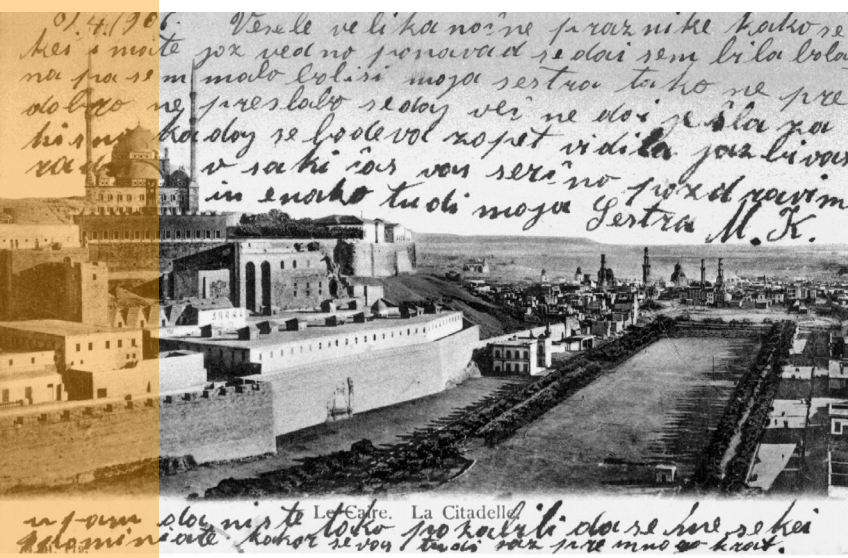 9/4.1906. Vesele velikanočne praznike kako se
kei imate joz vedno ponavad sedai sem bila bola
na pa sem malo bolisi moja sestra tako ne pre
dobro ne preslabo sedaj več ne doi
kadaj se bodeva zopet vidila jaz
vsaki čas vas serčno pozdravim
in enako tudi moja Sestra M. K.
Le Caire. La Citadelle.
upam da niste tako pozabili da se me se kei
kakor se vas tudi jaz pre mnogo krat